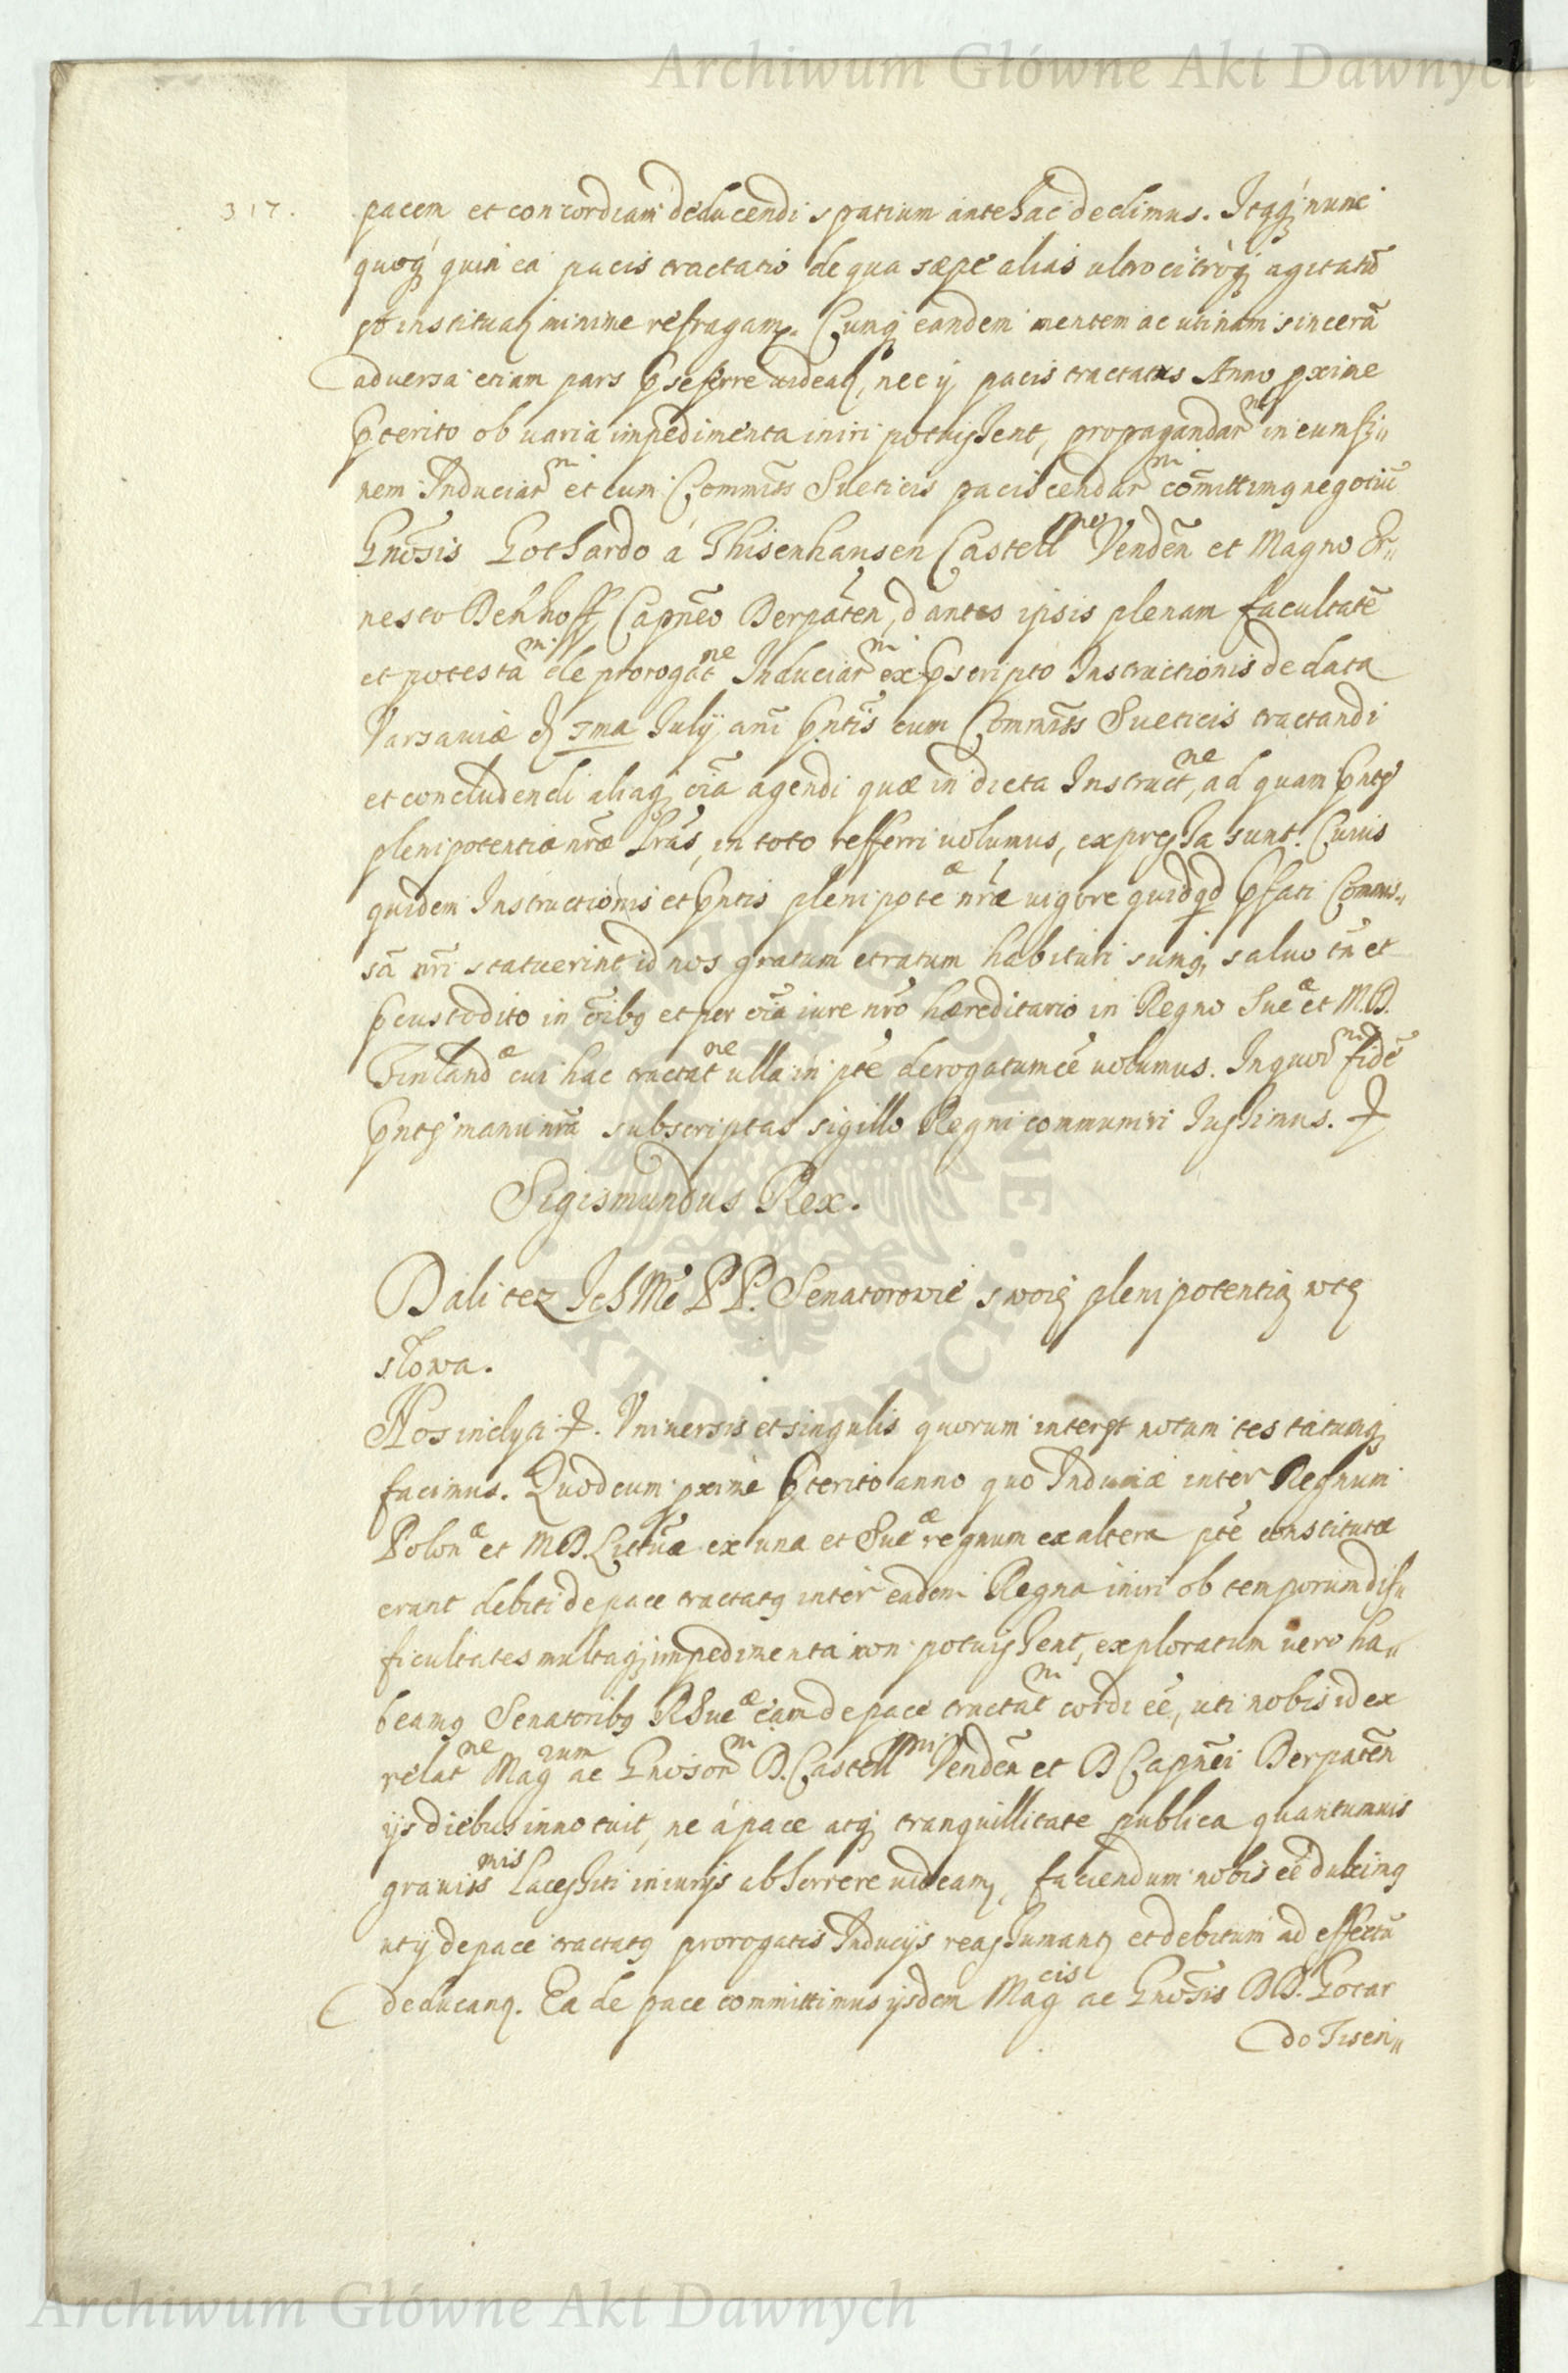 Archiwum Główne Akt Dawnych
317.
pacem et concordiam deducendi spatium antehac dedimus. Itaq; nunc
quoq; quin ea pacis tractatio de qua sæpe alias ultro citroq; agitatũ
instituat minime refragam. Cumq; eandem mentem ac utinam sincerã
adversa etiam pars p̃seferre videat, nec ij pacis tractatus Anno pxime
p̃terito ob varia impedimenta iniri potuissent, propagandarm in eum fi„
nem Induciarm et cum Commĩss Sueticis paciscendarm cõmittimq negotiũ
Gnõsis Gothardo á Thisenhausen Castellno Vendeñ et Magno Er„
nesto Denhoff Capñeo Derpateñ, dantes ipsis plenam facultatẽ
et potestam de prorogatne Induciarm ex p̃scripto Instructionis de data
Varsaviæ d 3ma July ani p̃ntis cum Commĩss Sueticis tractandi
et concludendi aliaq; oĩa agendi quæ in dicta Instructne, ad quam p̃ntes
plenipotentiæ nræ lras, in toto referri volumus, expressa sunt. Cuius
quidem Instructionis et p̃ntis plenipoteæ nræ vigore quidqd p̃fati Commis„
sã nri statuerint id nos gratum et ratum habituri sumq, salvo tñ et
p̃custodito in oĩbq et per oĩa iure nro hæreditario in Regno Sueæ et M.D.
Finlandæ cui hac tractatne ulla in pte derogatum eẽ volumus. In quorm fidẽ
p̃ntes manu nra subscriptas sigillo Regni communiri Jussimus. &
Sigismundus Rex.
Dali tez IchMć PP. Senatorowie swoię plenipotentię w te
słowa.
Nos inclyti &. Universis et singulis quorum interest notum testatumq;
facimus. Quod cum pxime p̃terito anno quo Induciæ inter Regnum
Polonæ et MD. Lituæ ex una et Sueæ regnum ex altera pte constitutæ
erant debiti de pace tractatq inter eadem Regna iniri ob temporum dif„
ficultates multaq; impedimenta non potuissent, exploratum vero ha„
beamq Senatoribq RSueæ eam de pace tractatm cordi eẽ, uti nobis id ex
relatne Magrum ac Gnosorm D. Castellni Vendeñ et D Capñei Derpateñ
ijs diebus innotuit, ne á pace atq; tranquillitate publica quantumvis
gravissmis lacessiti iniurijs abhorrere videam, faciendum nobis eẽ duximq
ut ij de pace tractatq prorogatis Inducijs reassumant et debitum ad effectũ
deducant. Ea de pace committimus ijsdem Magcis ac Gnõsis DD. Gotar
do Tisen„
Archiwum Główne Akt Dawnych